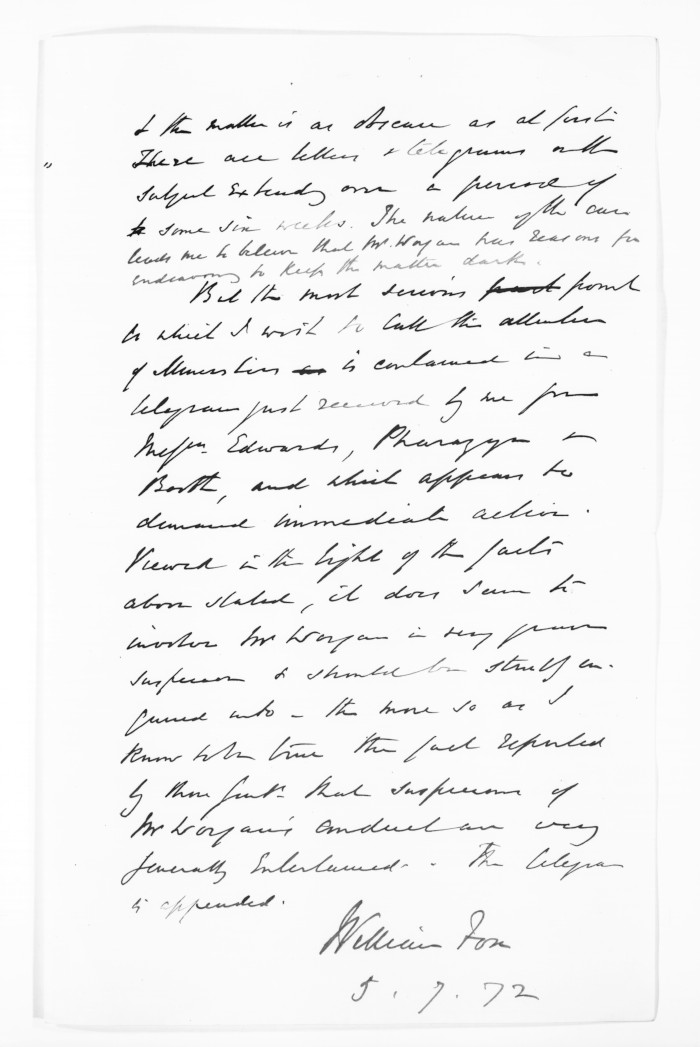 & the matter is as obscure as at first.
There are letters & telegrams on the
subject extending over a period of
to some six weeks. The nature of the case
leads me to believe that Mr. Worgan has reasons for
endeavoring to keep the matter dark.
But the most serious point
to which I wish to call the attention
of Ministers is contained in a
telegram just received by me from
Messrs. Edwards, Pharazyn &
Booth, and which appears to
demand immediate action.
Viewed in the light of the facts
above stated, it does seem to
involve Mr Worgan in very grave
suspicion & should be strictly en-
quired into - the more so as I
know to be true the fact reported
by those Gentn. that suspicions of
Mr Worgan's conduct are very
generally entertained. The telegram
is appended.
William Fox
5.7.72